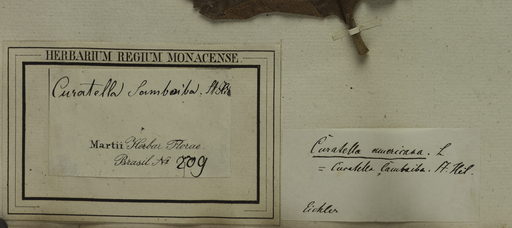 HERBARIUM REGIUM MONACENSE
Curatella Sambaiba. St. Hil.
Martii Herbar. Florae
Brasil. No 209
Curatella americana. L
= Curatella Çambaiba. St. Hil.
Eichler